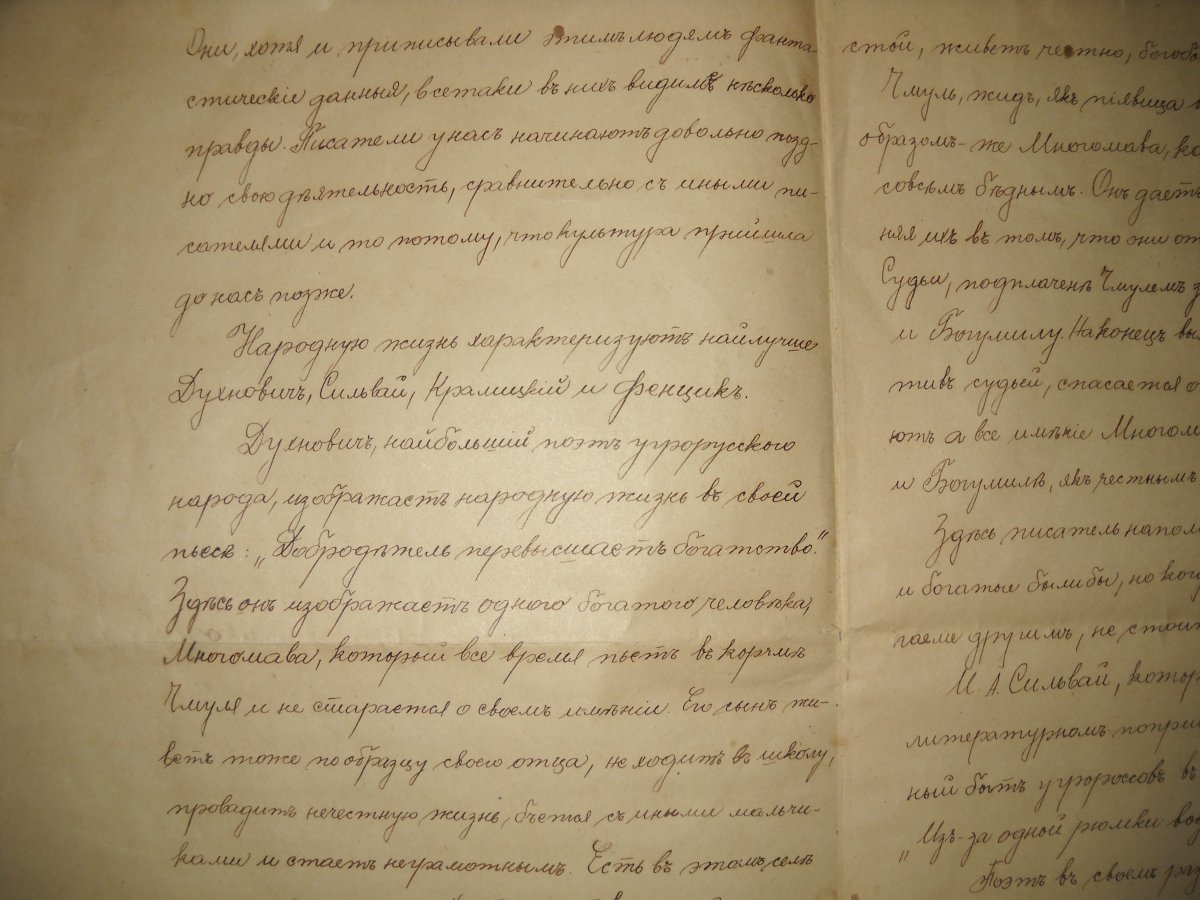 Они, хотя и приписывали этимъ людямъ фанта-
стическіе данныя, всетаки въ нихъ видимъ нѣсколько
правды. Писатели у насъ начинаютъ довольно позд-
но свою дѣятельность, сравнительно съ иными пи-
сателями и то потому, что культура прийшла
до насъ позже.
Народную жизнь характеризуютъ найлучше
Духновичъ, Сильвай, Кралицкій и Фенцикъ.
Духновичъ, найбольшій поэтъ угрорусского
народа, изображаетъ народную жизнь въ своей
пьесѣ: „Добродѣтель перевысшаетъ богатство."
Здѣсь онъ изображаетъ одного богатого человѣка,
Многомава, который все время пьетъ въ корчмѣ
Чмуля и не старается о своемъ имѣніи. Его сынъ жи-
ветъ тоже по образцу своего отца, не ходитъ въ школу,
провадитъ нечестную жизнь, бьется съ иными мальчи-
ками и стаетъ неграмотнымъ. Есть въ этомъ селѣ
стой, живетъ честно, богобо
Чмуль, жидъ, якъ піявица
образомъ-же Многомава, ко
совсѣмъ бѣднымъ. Онъ даетъ
няя ихъ въ томъ, что они от
Судьи, подплаченъ Чмулемъ з
и Богумилу. Наконецъ вы
тивъ судьей, спасается о
ютъ а все имѣніе Многом
и Богумилѣ, якъ честнымъ
Здѣсь писатель напом
и богатые были бы, но ког
гаеме другимъ, не стои
И. А. Сильвай, котор
литературномъ попри
ный бытъ угророссовъ въ
„Изъ-за одной рюмки вод
Поэтъ въ своемъ раз